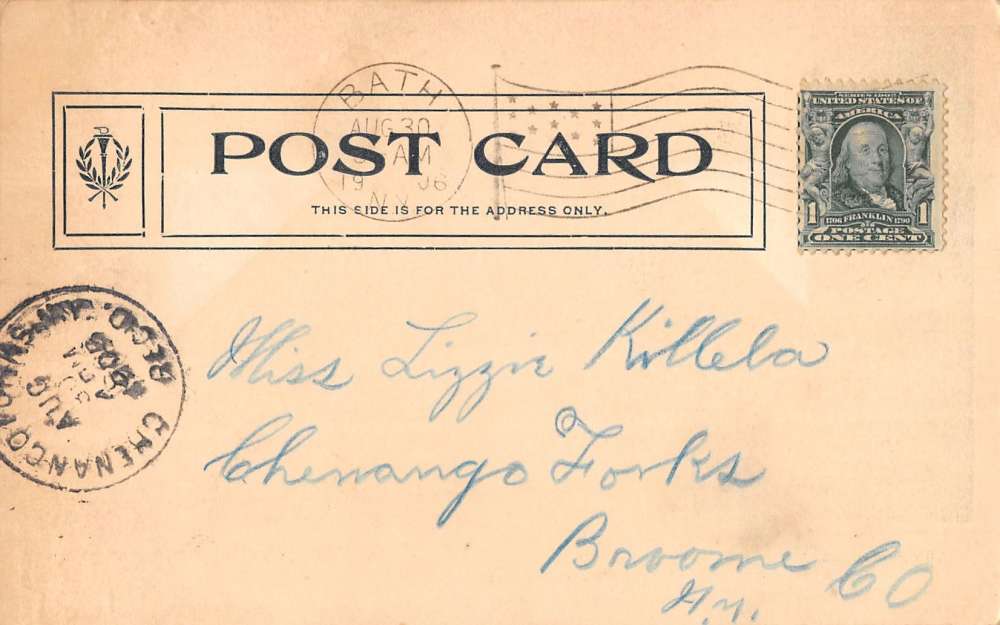 BATH
AUG 30
AM
1906
N.Y.
POST CARD
THIS SIDE IS FOR THE ADDRESS ONLY.
SERIES 1902
UNITED STATES OF
AMERICA
1 1
1706 FRANKLIN 1790
POSTAGE
ONE CENT
REC'D.
AUG
1906
CHENANGO FORKS
Miss Lizzie Killela
Chenango Forks
Broome Co
N.Y.